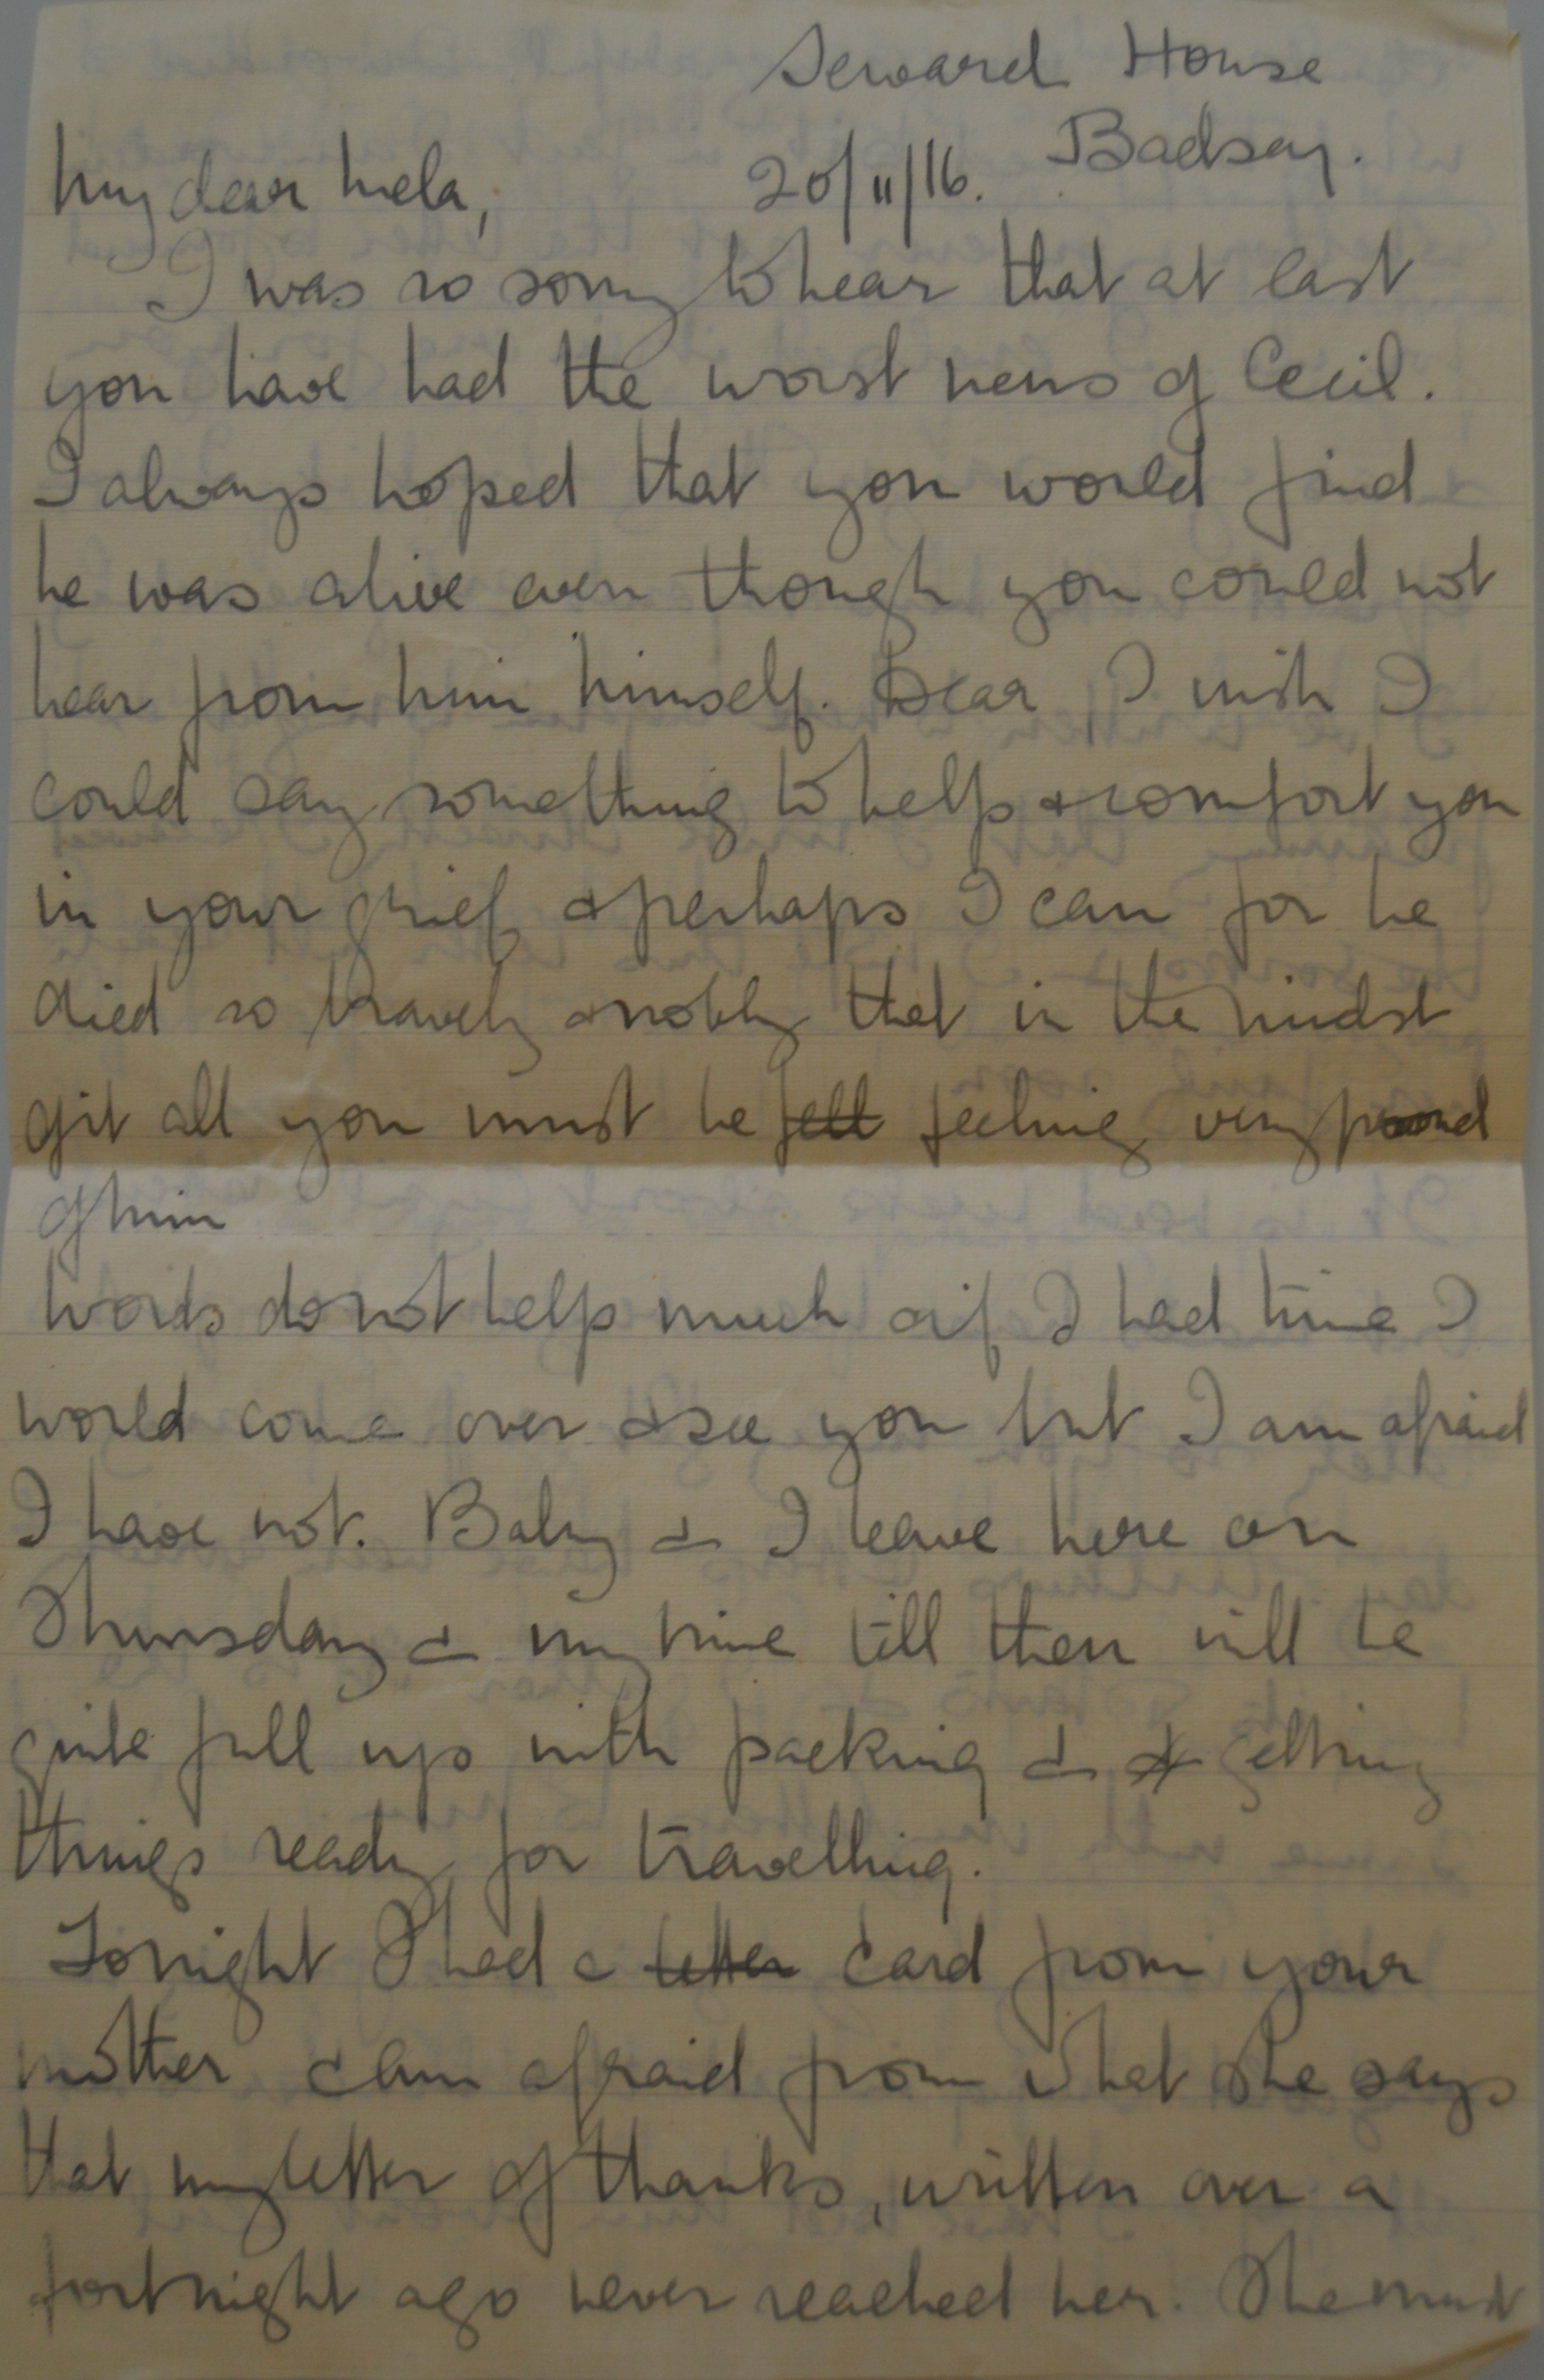 Seward House
Badsey.
My dear Mela, 20/11/16.
I was so sorry to hear that at last
you have had the worst news of Cecil.
I always hoped that you would find
he was alive even though you could not
hear from him himself. Dear, I wish I
could say something to help & comfort you
in your grief & perhaps I can for he
died so bravely & nobly that in the midst
of it all you must be fell feeling very proud
of him
Words do not help much & if I had time I
would come over & see you but I am afraid
I have not. Baby & I leave here on
Thursday & my time till then will be
quite full up with packing & & getting
things ready for travelling.
Tonight I had a letter card from your
mother & am afraid from what she says
that my letter of thanks, written over a
fortnight ago never reached her. She must